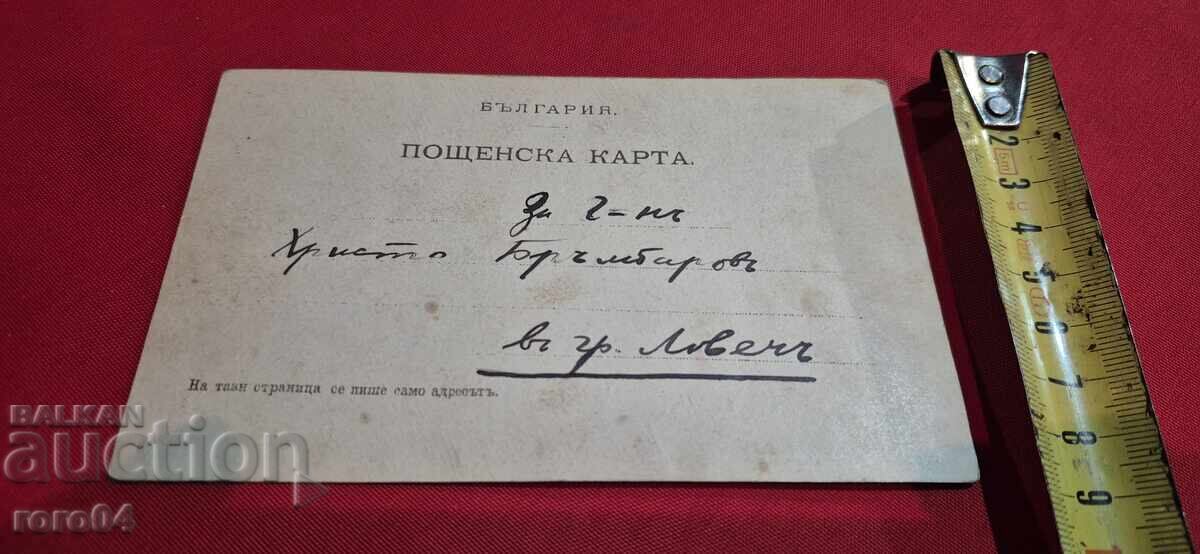 БЪЛГАРИЯ.
ПОЩЕНСКА КАРТА.
За г-нъ
Христо Бръмбаровъ
въ гр. Ловечъ
На тази страница се пише само адресътъ.
BALKAN
auction
roro04
2
3
4
5
6
7
8
9